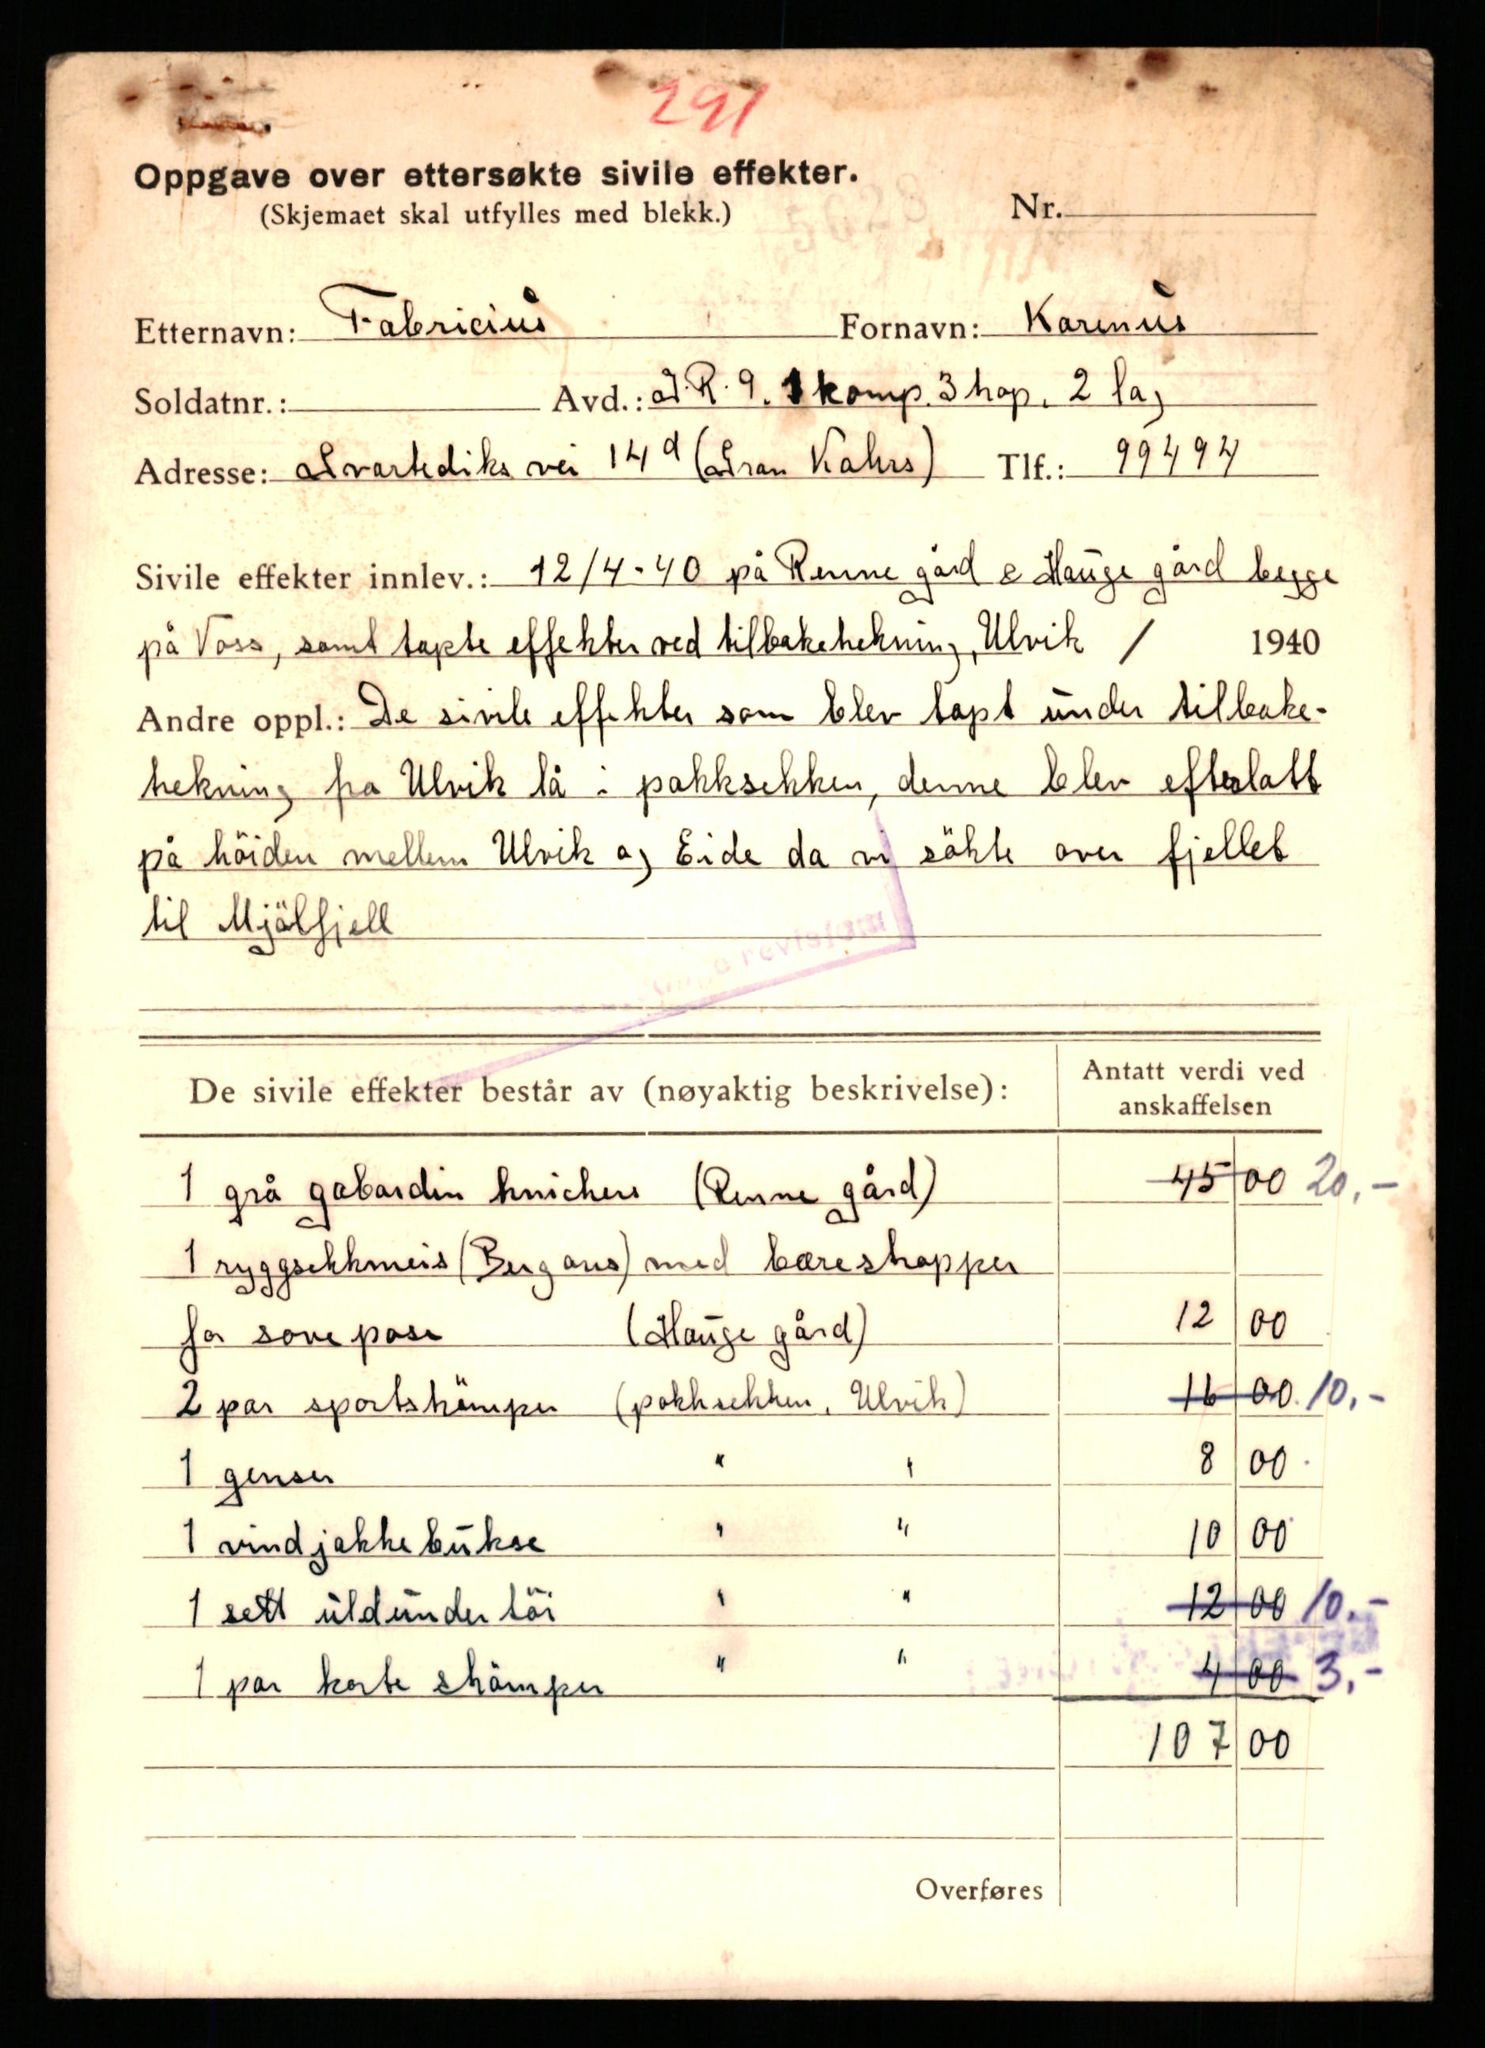 291
Oppgave over ettersøkte sivile effekter.
(Skjemaet skal utfylles med blekk.)
Nr.
Etternavn: Fabricius Fornavn: Karenus
Soldatnr.: Avd.: I.R. 9. 1 komp. 3 trop. 2 lag
Adresse: Svartediks vei 14d (Gran Kahrs) Tlf.: 99494
Sivile effekter innlev.: 12/4-40 på Renne gård & Hauge gård begge
på Voss, samt tapte effekter ved tilbaketrekning, Ulvik / 1940
Andre oppl.: De sivile effekter som blev tapt under tilbake-
trekning fra Ulvik lå i pakksekken, denne blev efterlatt
på höiden mellem Ulvik og Eide da vi sökte over fjellet
til Mjölfjell
revisjon
De sivile effekter består av (nøyaktig beskrivelse): Antatt verdi ved
anskaffelsen
1 grå gabardin knickers (Renne gård) 45 00 20,-
1 ryggsekkmeis (Bergans) med bærestropper
for sovepose (Hauge gård) 12 00
2 par sportströmper (pakksekken, Ulvik) 16 00 10,-
1 genser " " 8 00
1 vindjakkebukse " " 10 00
1 sett uldundertöi " " 12 00 10,-
1 par korte strömper " " 4 00 3,-
107 00
Overføres